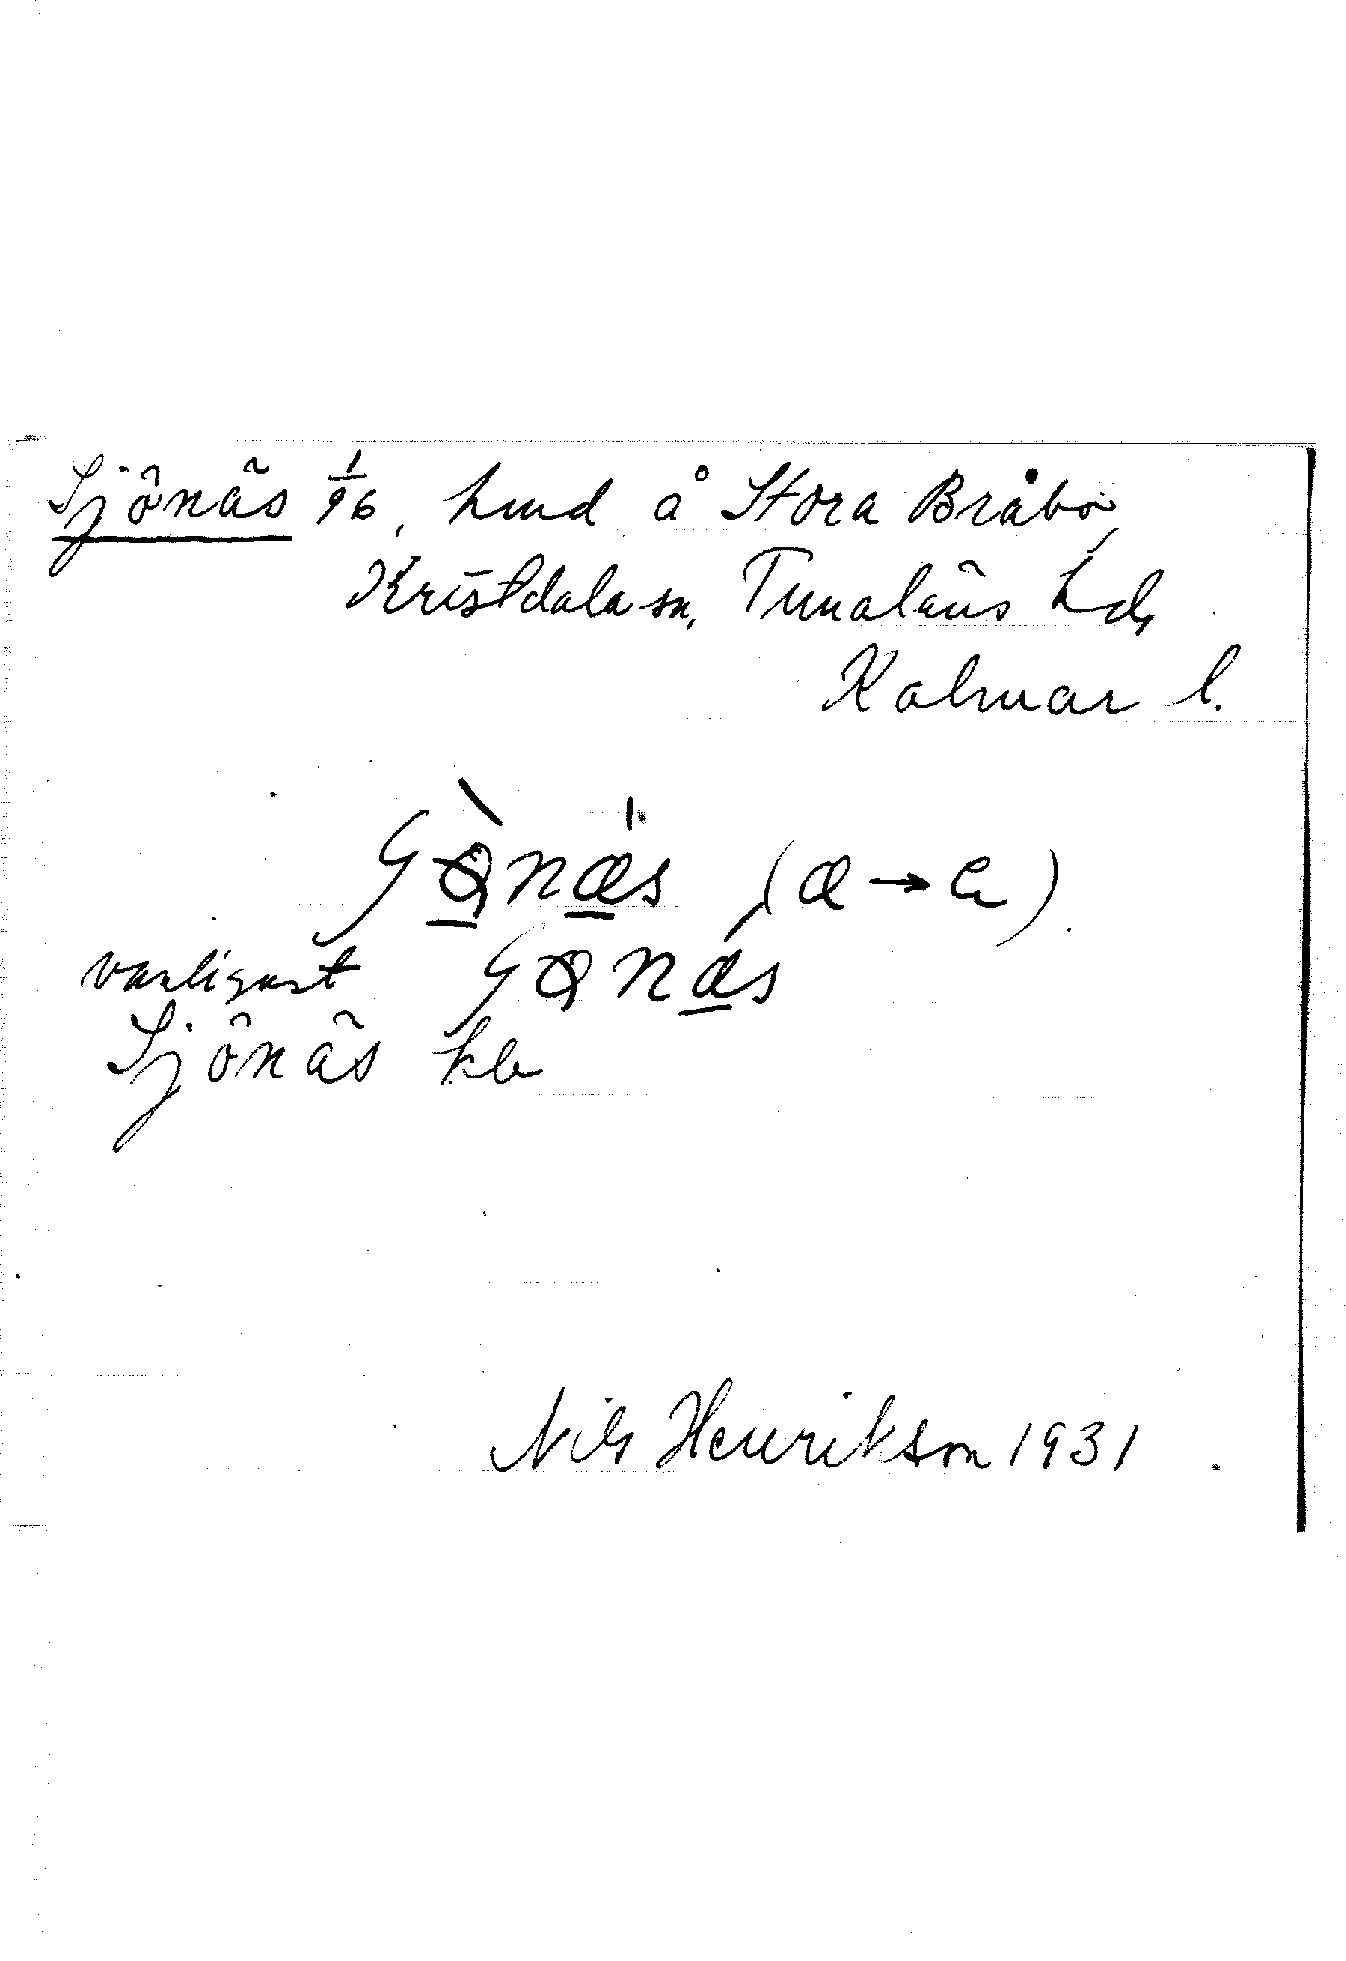 Sjönäs 1/96, hmd å Stora Bråbo,
Kristdala sn, Tunaläns hd,
Kalmar l.
(æ → e)
vanligast
Sjönäs klb
Nils Henrikson 1931